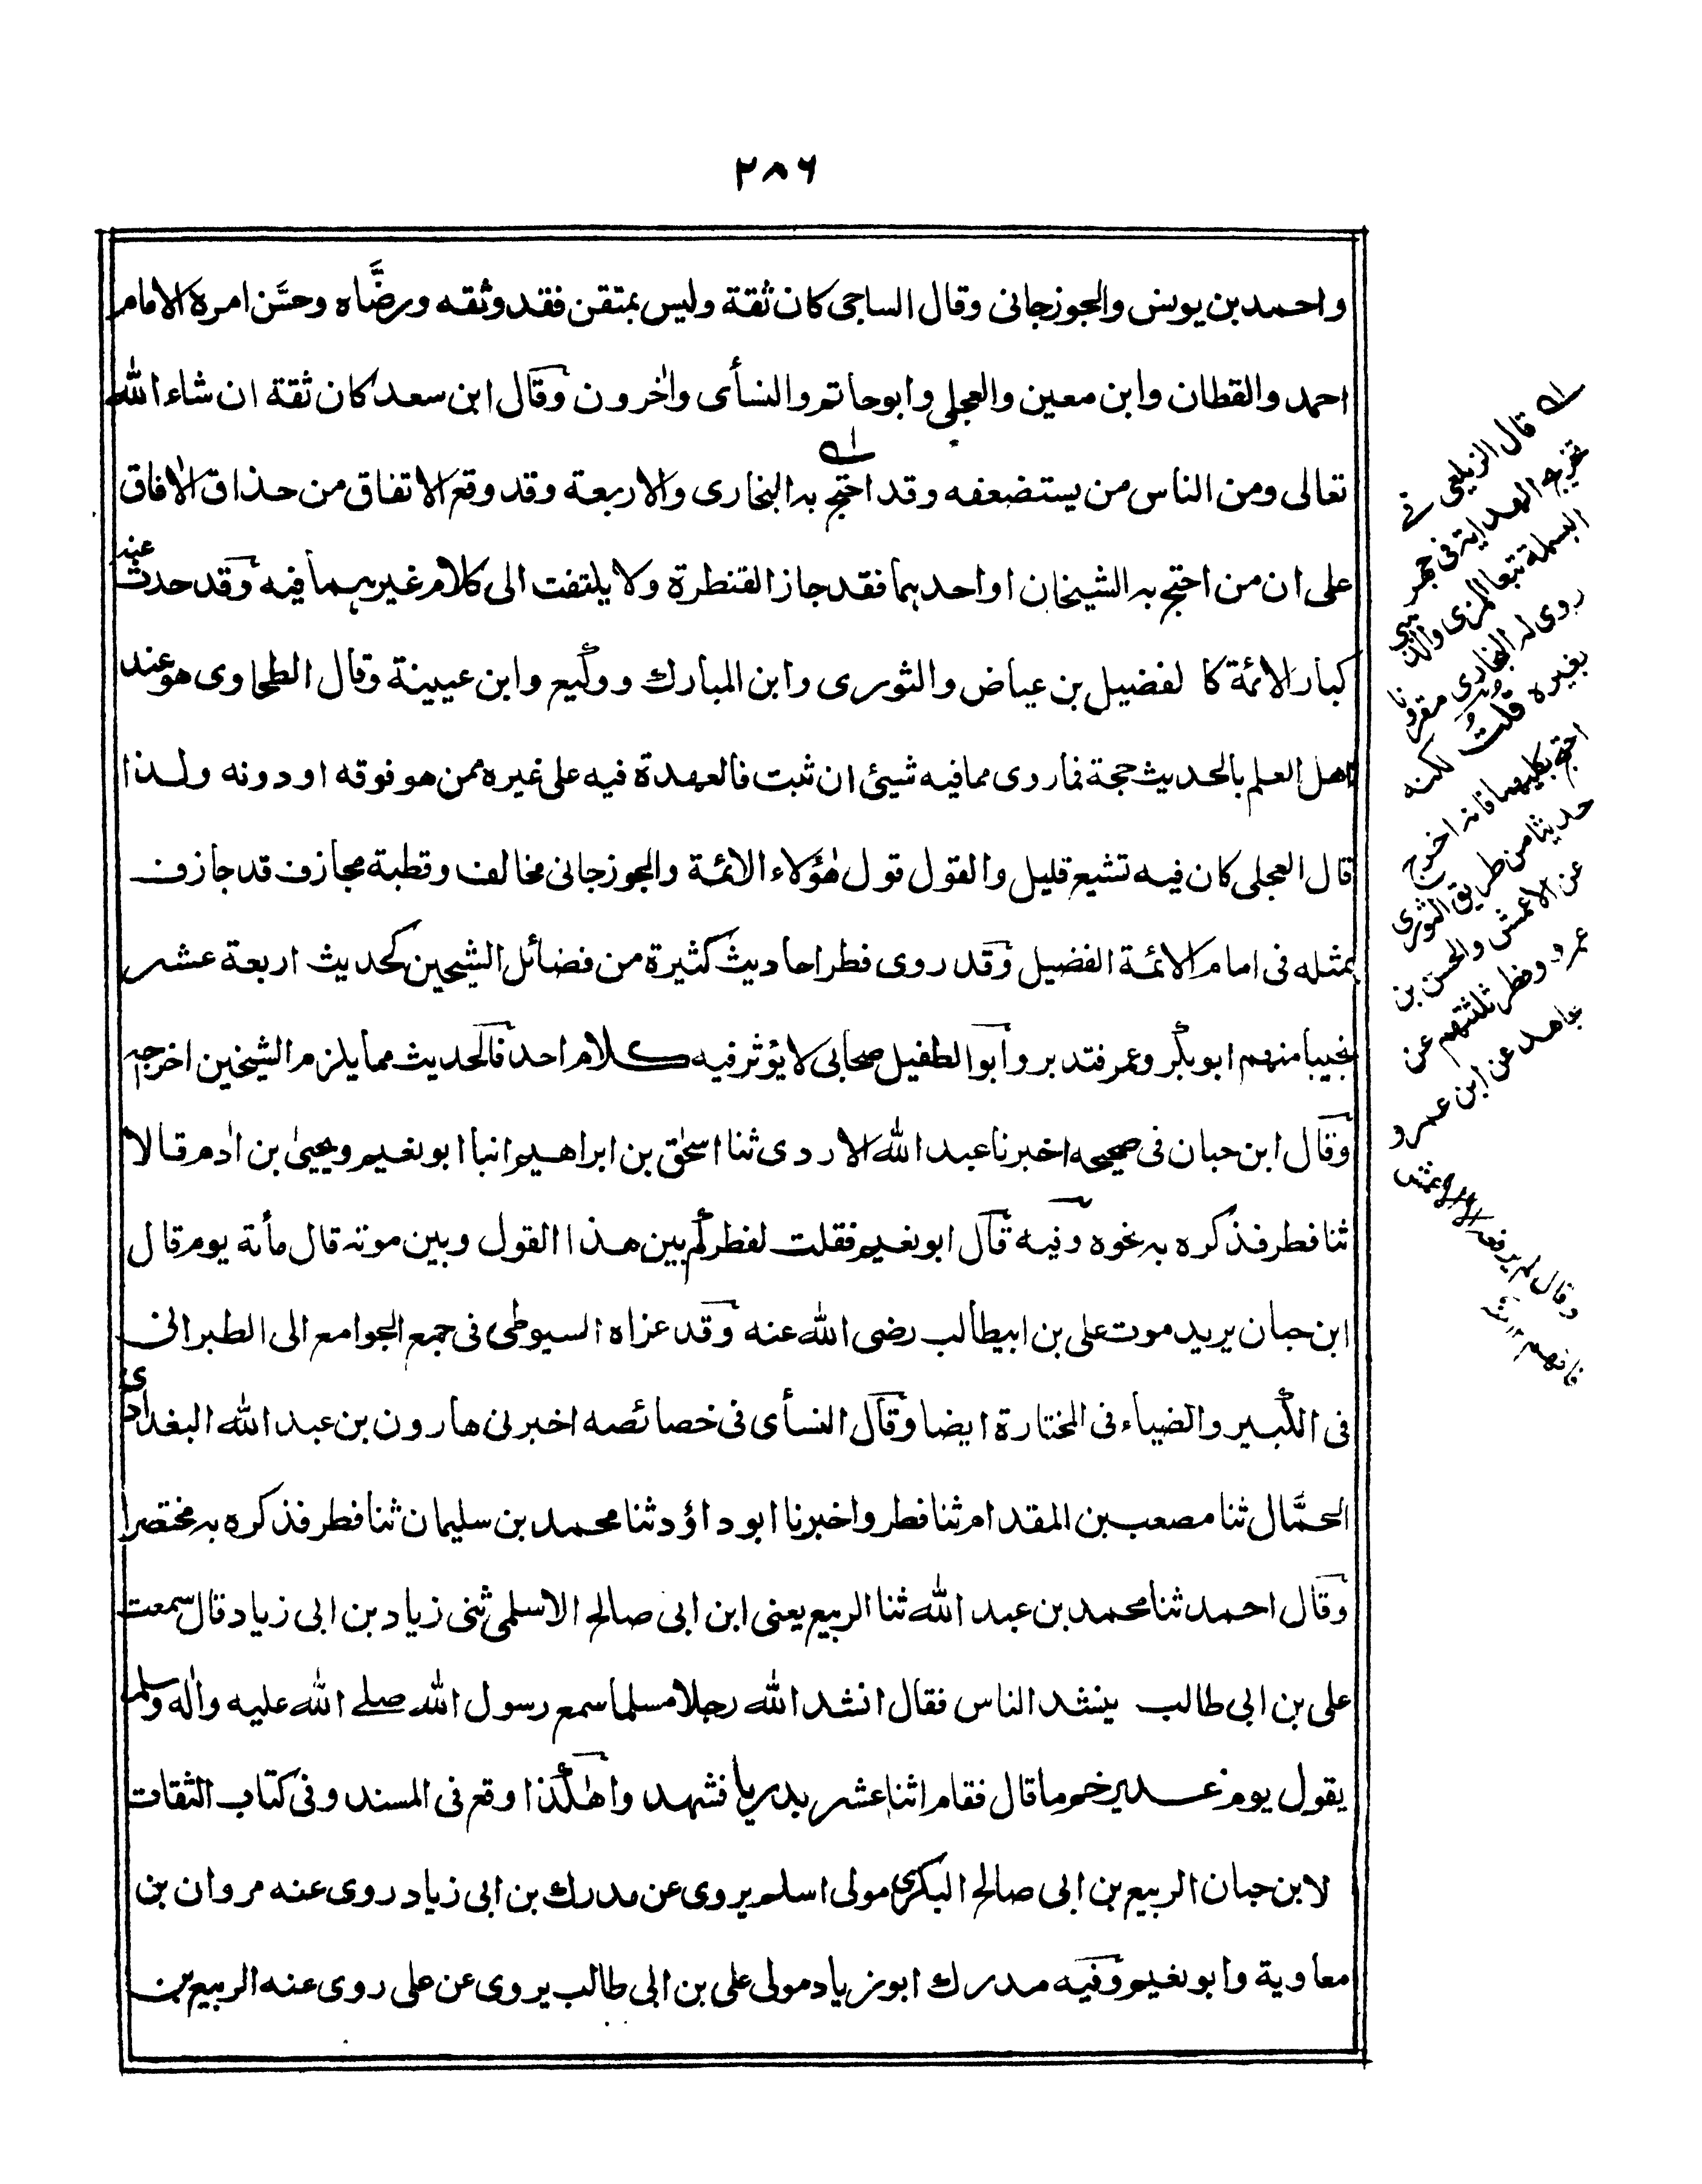 ٢٨٦
واحمد بن يونس والجوزجانى وقال الساجى كان ثقة وليس بمتقن فقد وثقه ورضَّاه وحسَّن امره الامام
احمد والقطان وابن معين والعجلى وابوحاتم والنسأى واٰخرون وقال ابن سعد كان ثقة ان شاء الله
تعالى ومن الناس من يستضعفه وقد احتج به البخارى والاربعة وقد وقع الاتفاق من حذاق الاٰفاق
على ان من احتج به الشيخان او احدهما فقد جاز القنطرة ولا يلتفت الى كلام غيرهما فيه وقد حدث عنه
كبار الائمة كا لفضيل بن عياض والثورى وابن المبارك ووكيع وابن عيينة وقال الطحاوى هو عند
اهل العلم بالحديث حجة فما روى مما فيه شيئ ان ثبت فالعهدة فيه على غيره ممن هو فوقه او دونه ولذا
قال العجلى كان فيه تشيع قليل والقول قول هٰؤلاء الائمة والجوزجانى مخالف وقطبة مجازف قد جازف
بمثله فى امام الائمة الفضيل وقد روى فطر احاديث كثيرة من فضائل الشيخين كحديث اربعة عشر
نجيبا منهم ابو بكر وعمر فتدبر وابو الطفيل صحابى لا يؤثر فيه كلام احد فالحديث مما يلزم الشيخين اخراجه
وقال ابن حبان فى صحيحه اخبرنا عبد الله الازدى ثنا اسحٰق بن ابراهيم انبا ابو نعيم ويحيىٰ بن اٰدم قالا
ثنا فطر فذكره به نحوه وفيه قال ابو نعيم فقلت لفطر كم بين هذا القول وبين موته قال مأة يوم قال
ابن حبان يريد موت على بن ابيطالب رضى الله عنه وقد عزاه السيوطى فى جمع الجوامع الى الطبرانى
فى الكبير والضياء فى المختارة ايضا وقال النسأى فى خصائصه اخبرنى هارون بن عبد الله البغدادى
الحمَّال ثنا مصعب بن المقدام ثنا فطر واخبرنا ابو داؤد ثنا محمد بن سليمان ثنا فطر فذكره به مختصرا
وقال احمد ثنا محمد بن عبد الله ثنا الربيع يعنى ابن ابى صالح الاسلمى ثنى زياد بن ابى زياد قال سمعت
على بن ابى طالب ينشد الناس فقال انشد الله رجلا مسلما سمع رسول الله صلے الله عليه واٰله وسلم
يقول يوم غدير خم ما قال فقام اثنا عشر بدريا فشهدوا هٰكذا وقع فى المسند وفى كتاب الثقات
لابن حبان الربيع بن ابى صالح البكرى مولى اسلم يروى عن مدرك بن ابى زياد روى عنه مروان بن
معاوية وابو نعيم وفيه مدرك ابو زياد مولى على بن ابى طالب يروى عن على روى عنه الربيع بن
له قال الزيلعى فے
تخريج الهداية فى جهر
البسملة تبعا للمزى والذهبى
روى له البخارى مقرونا
بغيره قلتُ لكنه
احتج بكليهما فانه اخرج
حديثا من طريق الثورى
عن الاعمش والحسن بن
عمرو وفطر ثلثتهم عن
مجاهد عن ابن عمرو
وقال لم يرفعه الاعمش
فافهم ١٢ منه